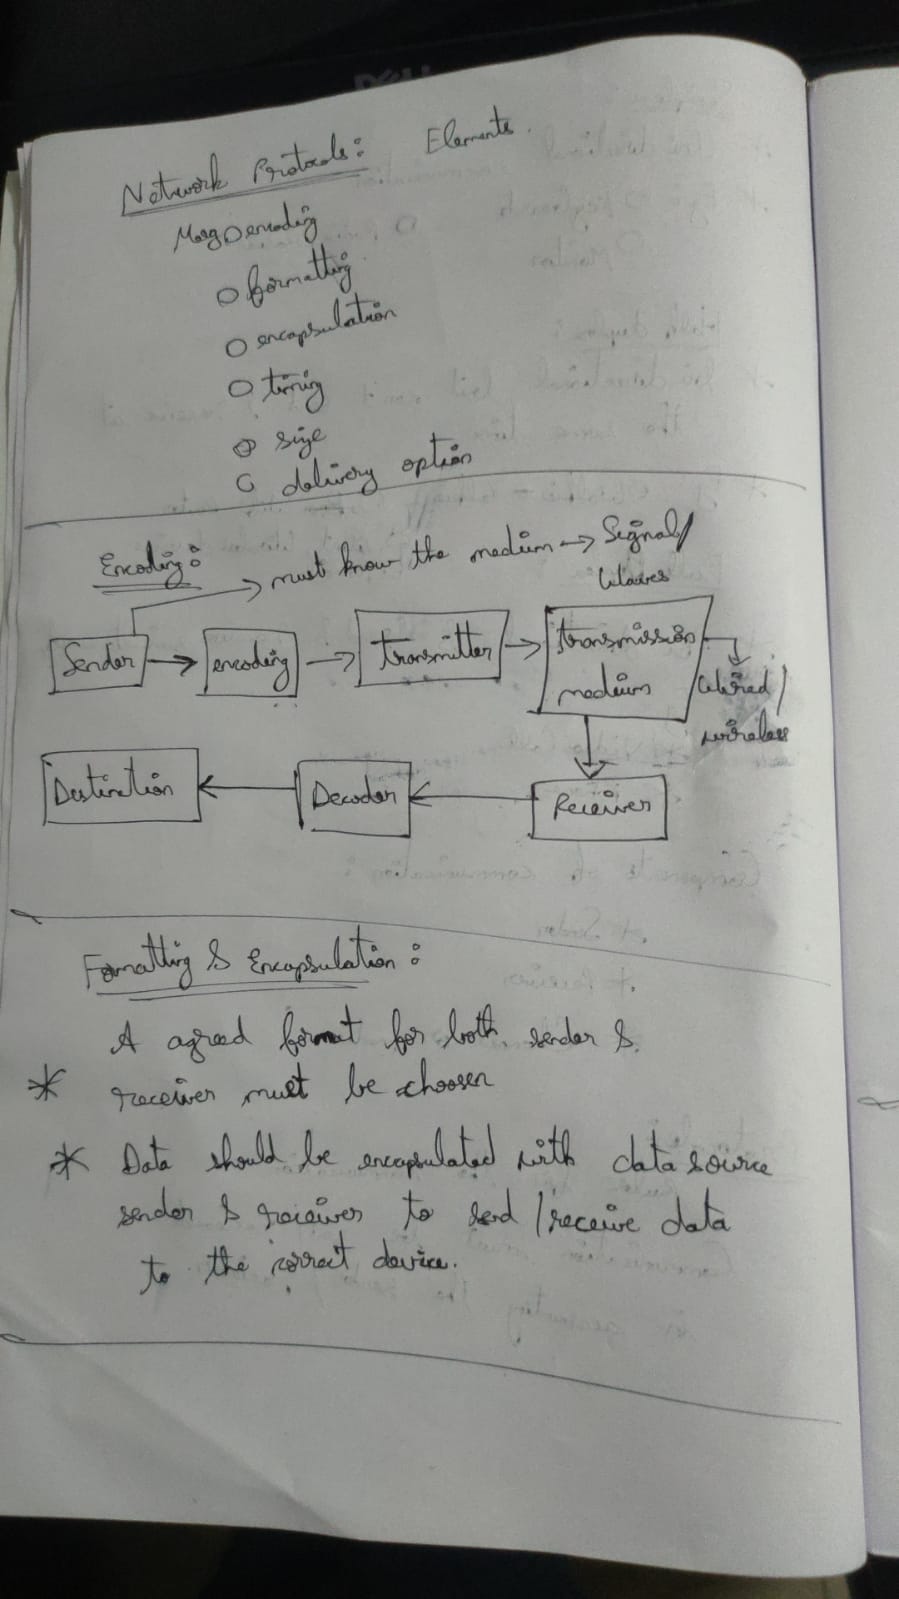 Network Protocols: Elements.
Msg encoding
formatting
encapsulation
timing
size
delivery option
Encoding:
must know the medium → Signal/
Waves
Sender → encoding → transmitter → transmission
medium
Wired/
wireless
Destination ← Decoder ← Receiver
Formatting & Encapsulation:
A agreed format for both sender &
* receiver must be choosen
* Data should be encapsulated with data source
sender & receiver to send / receive data
to the correct device.